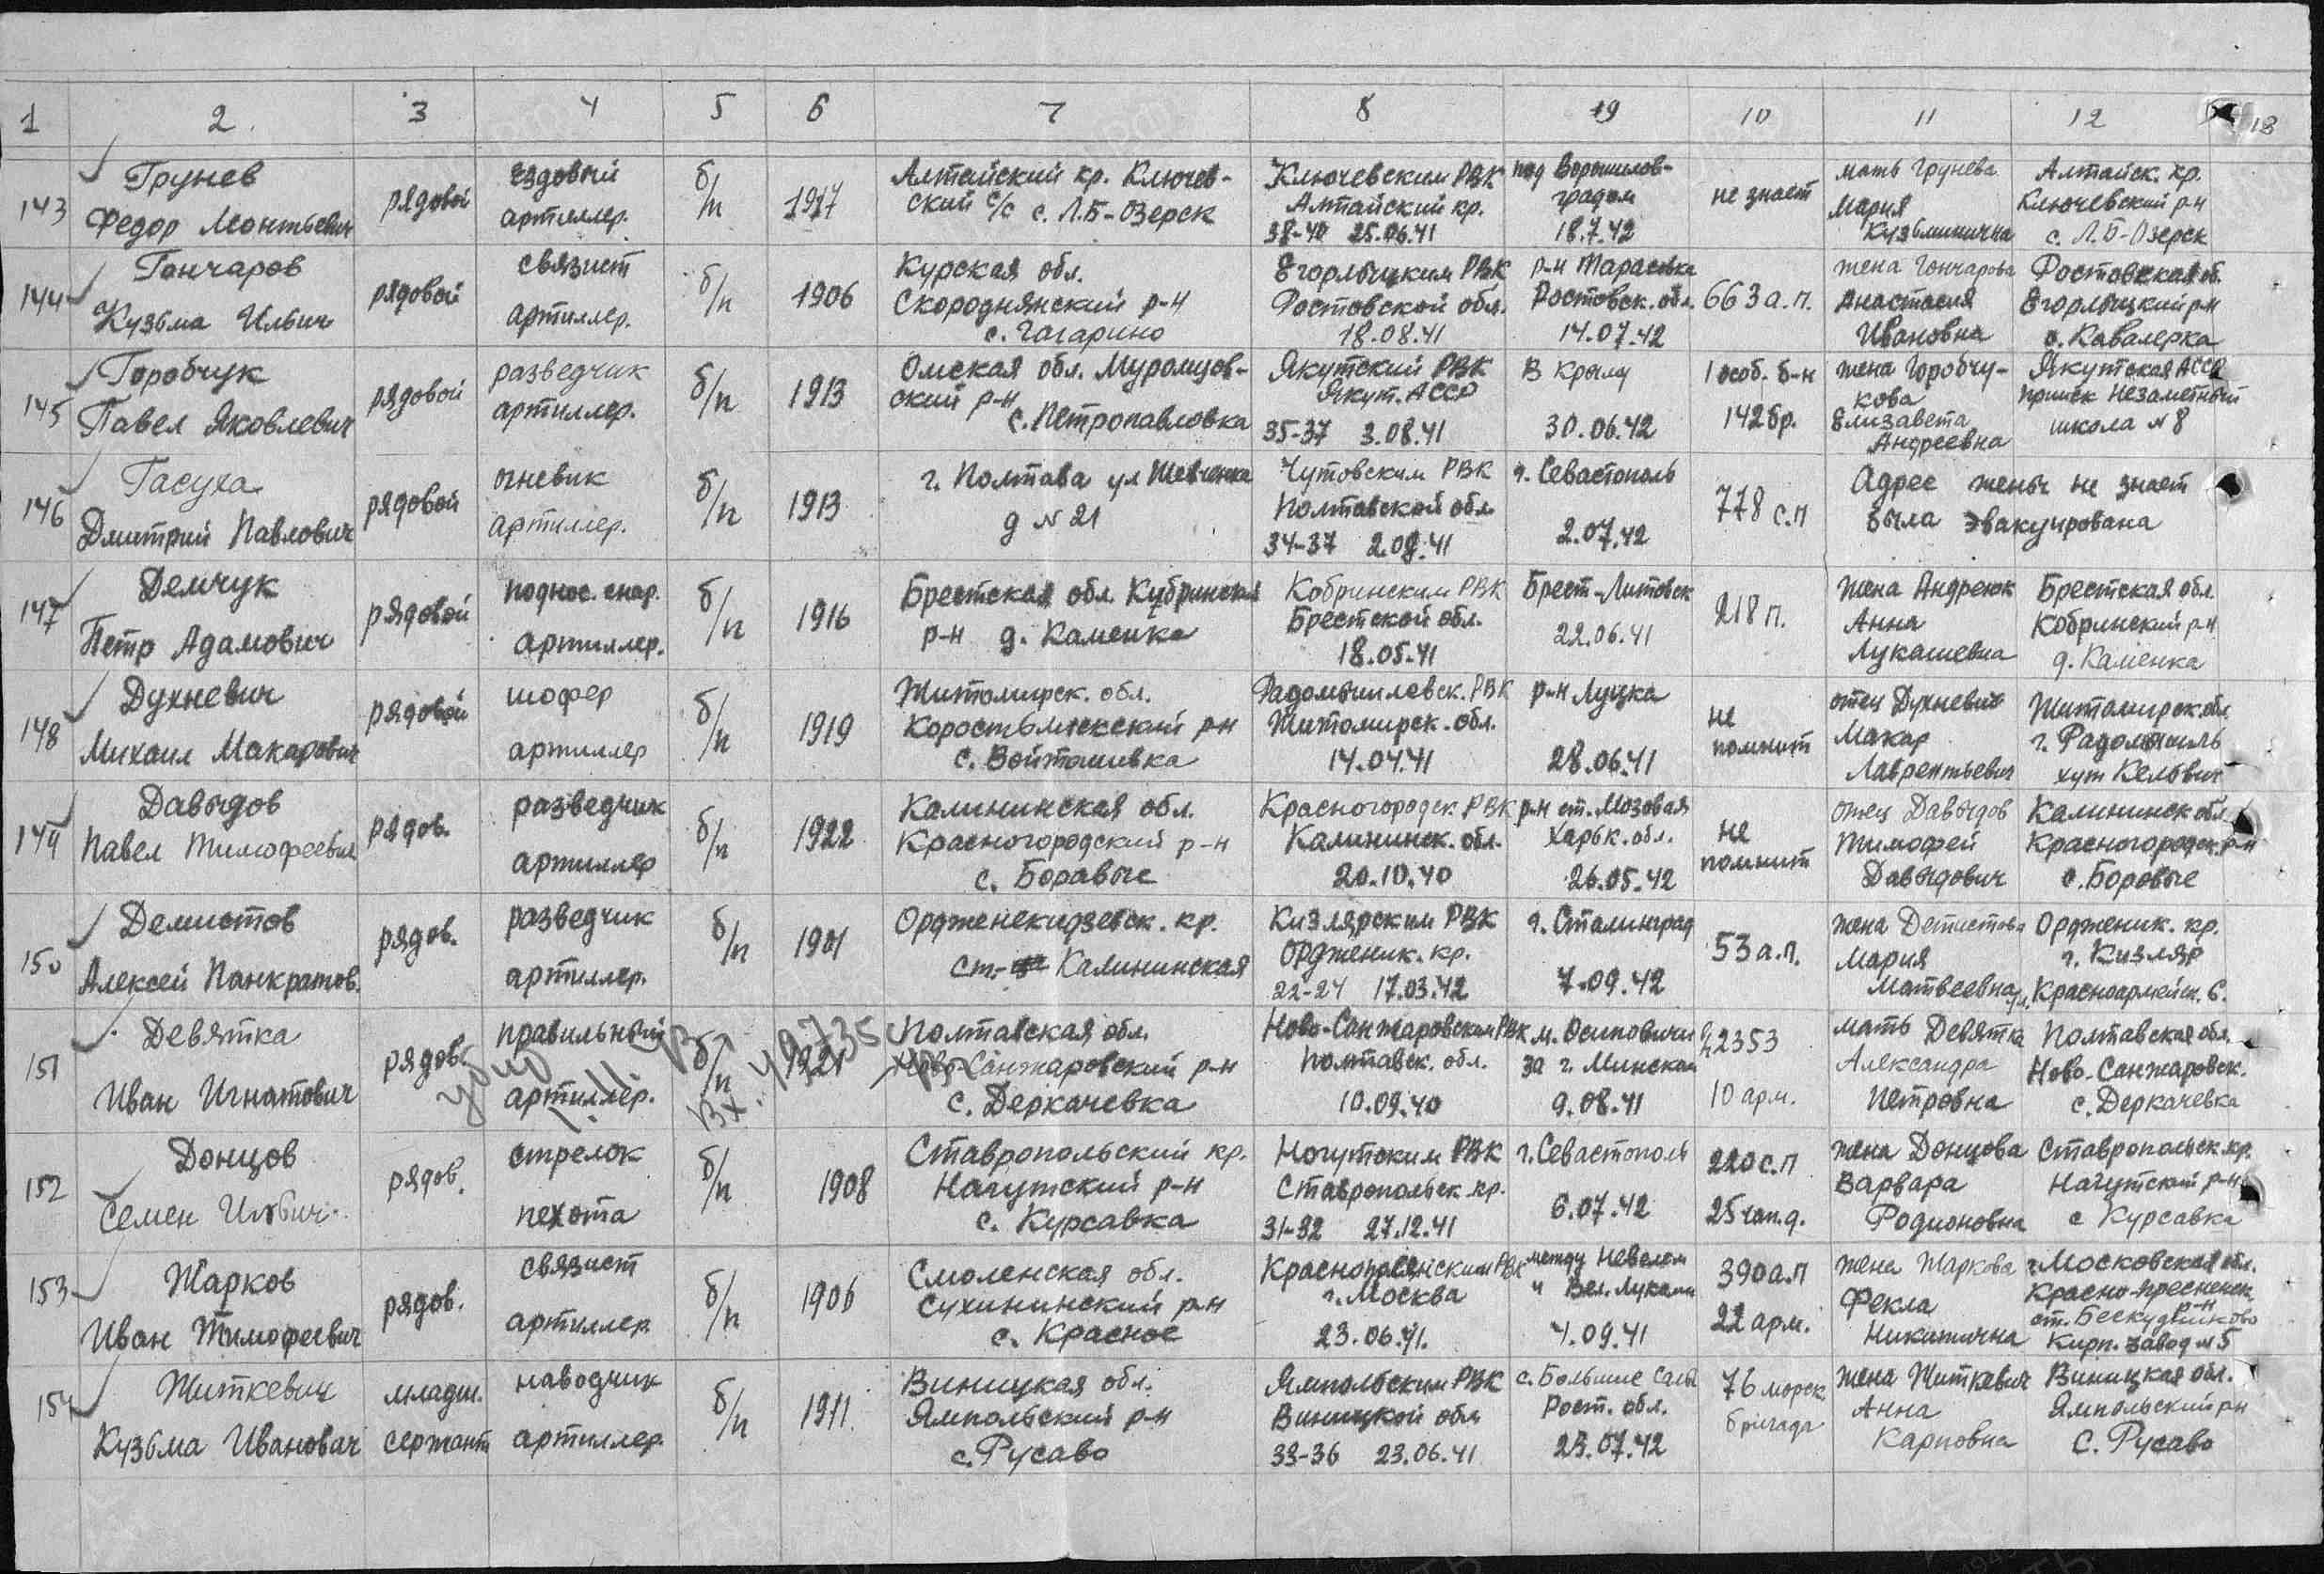 1 2. 3 4 5 6 7 8 9 10 11 12 13
143
Грунев
Федор Леонтьевич
рядовой
ездовый
артиллер.
б/п
1917
Алтайский кр. Ключев-
ский с/с с. Л.Б-Озерск
Ключевским РВК
Алтайский кр.
38-40 25.06.41
под Ворошилов-
градом
18.7.42
не знает
мать Грунева
Мария
Кузьминична
Алтайск. кр.
Ключевский р-н
с. Л.Б-Озерск
144
Гончаров
Кузьма Ильич
рядовой
связист
артиллер.
б/п
1906
Курская обл.
Скороднянский р-н
с. Гагарино
Егорлыцким РВК
Ростовской обл.
18.08.41
р-н Тарасовка
Ростовск. обл.
14.07.42
663 а.п.
жена Гончарова
Анастасия
Ивановна
Ростовская об.
Егорлыцкий р-н
с. Кавалерка
145
Горобчук
Павел Яковлевич
рядовой
разведчик
артиллер.
б/п
1913
Омская обл. Муромцов-
ский р-н
с. Петропавловка
Якутский РВК
Якут. АССР
35-37 3.08.41
В Крыму
30.06.42
1 особ. б-н
142 бр.
жена Горобчу-
кова
Елизавета
Андреевна
Якутская АССР
прииск Незаметный
школа №8
146
Гасуха
Дмитрий Павлович
рядовой
огневик
артиллер.
б/п
1913
г. Полтава ул Шевченка
д №21
Чутовским РВК
Полтавской обл.
34-37
г. Севастополь
2.07.42
778 с.п
Адрес жены не знает
была эвакуирована
147
Демчук
Петр Адамович
рядовой
поднос. снар.
артиллер.
б/п
1916
Брестская обл. Кубринский
р-н д. Каменка
Кобринским РВК
Брестской обл.
18.05.41
Брест-Литовск
22.06.41
218 п.
жена Андреюк
Анна
Лукашевна
Брестская обл.
Кобринский р-н
д. Каменка
148
Духневич
Михаил Макарович
рядовой
шофер
артиллер
б/п
1919
Житомирск. обл.
р-н
с. Войташивка
Радомышлевск. РВК
Житомирск. обл.
14.04.41
р-н Луцка
28.06.41
не
помнит
отец Духневич
Макар
Лаврентьевич
Житомирск. обл.
г. Радомысль
хут
149
Давыдов
Павел Тимофеевич
рядов.
разведчик
артиллер
б/п
1922
Калининская обл.
Красногородский р-н
с. Боравые
Красногородск. РВК
Калининск. обл.
20.10.40
р-н ст. Лозовая
Харьк. обл.
26.05.42
не
помнит
отец Давыдов
Тимофей
Давыдович
Калининск обл.
Красногородск. р-н
с. Боровые
150
Демистов
Алексей Панкратов.
рядов.
разведчик
артиллер.
б/п
1901
Ордженекидзевск. кр.
ст. Калининская
Кизлярским РВК
Ордженик. кр.
22-24 17.03.42
г. Сталинград
7.09.42
53 а.п.
жена
Мария
Матвеевна
Ордженик. кр.
г. Кизляр
ул. Красноармейск. 6.
151
Девятка
Иван Игнатович
рядов.
правильный
артиллер.
б/п
Полтавская обл.
Ново-Санжаровский р-н
с. Деркачевка
Ново-Санжаровским РВК
Полтавск. обл.
10.09.40
м. Осиповичи
за г. Минском
9.08.41
2353
10 арм.
мать Девятка
Александра
Петровна
Полтавская обл.
Ново-Санжаровск.
с. Деркачевка
152
Донцов
Семен Ильич
рядов.
стрелок
пехота
б/п
1908
Ставропольский кр.
Нагутский р-н
с. Курсавка
Ногутским РВК
Ставропольск. кр.
31-32 27.12.41
г. Севастополь
6.07.42
220 с.п
25 чап.д.
жена Донцова
Варвара
Родионовна
Ставропольск. кр.
Нагутский р-н
с Курсавка
153
Жарков
Иван Тимофеевич
рядов.
связист
артиллер.
б/п
1906
Смоленская обл.
Сухининский р-н
с. Красное
Краснопресенским РВК
г. Москва
23.06.41.
между Невелем
и Вел. Луками
4.09.41
390 а.п
22 арм.
жена Жаркова
Фекла
Никитична
Московская обл.
Красно-пресненск.
р-н
ст. Бескудниково
Кирп. завод №5
154
Житкевич
Кузьма Иванович
младш.
сержант
наводчик
артиллер.
б/п
1911.
Виницкая обл.
Ямпольский р-н
с. Русаво
Ямпольским РВК
Виницкой обл
33-36 23.06.41
с. Большие Салы
Рост. обл.
23.07.42
76 морск.
бригада
жена Житкевич
Анна
Карповна
Виницкая обл.
Ямпольский р-н
с. Русаво